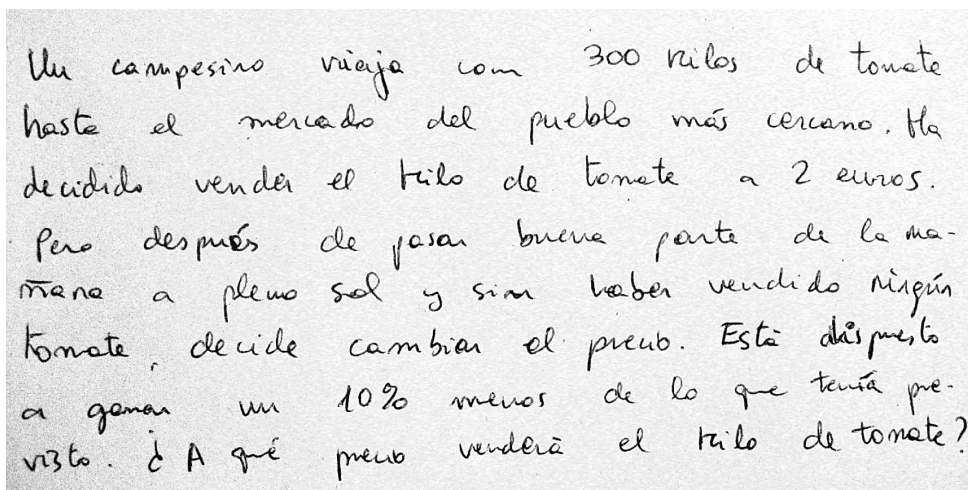 Un campesino viaja con 300 kilos de tomate
hasta el mercado del pueblo más cercano. Ha
decidido vender el kilo de tomate a 2 euros.
Pero después de pasar buena parte de la ma-
ñana a pleno sol y sin haber vendido ningún
tomate, decide cambiar el precio. Está dispuesto
a ganar un 10% menos de lo que tenía pre-
visto. ¿A qué precio venderá el kilo de tomate?